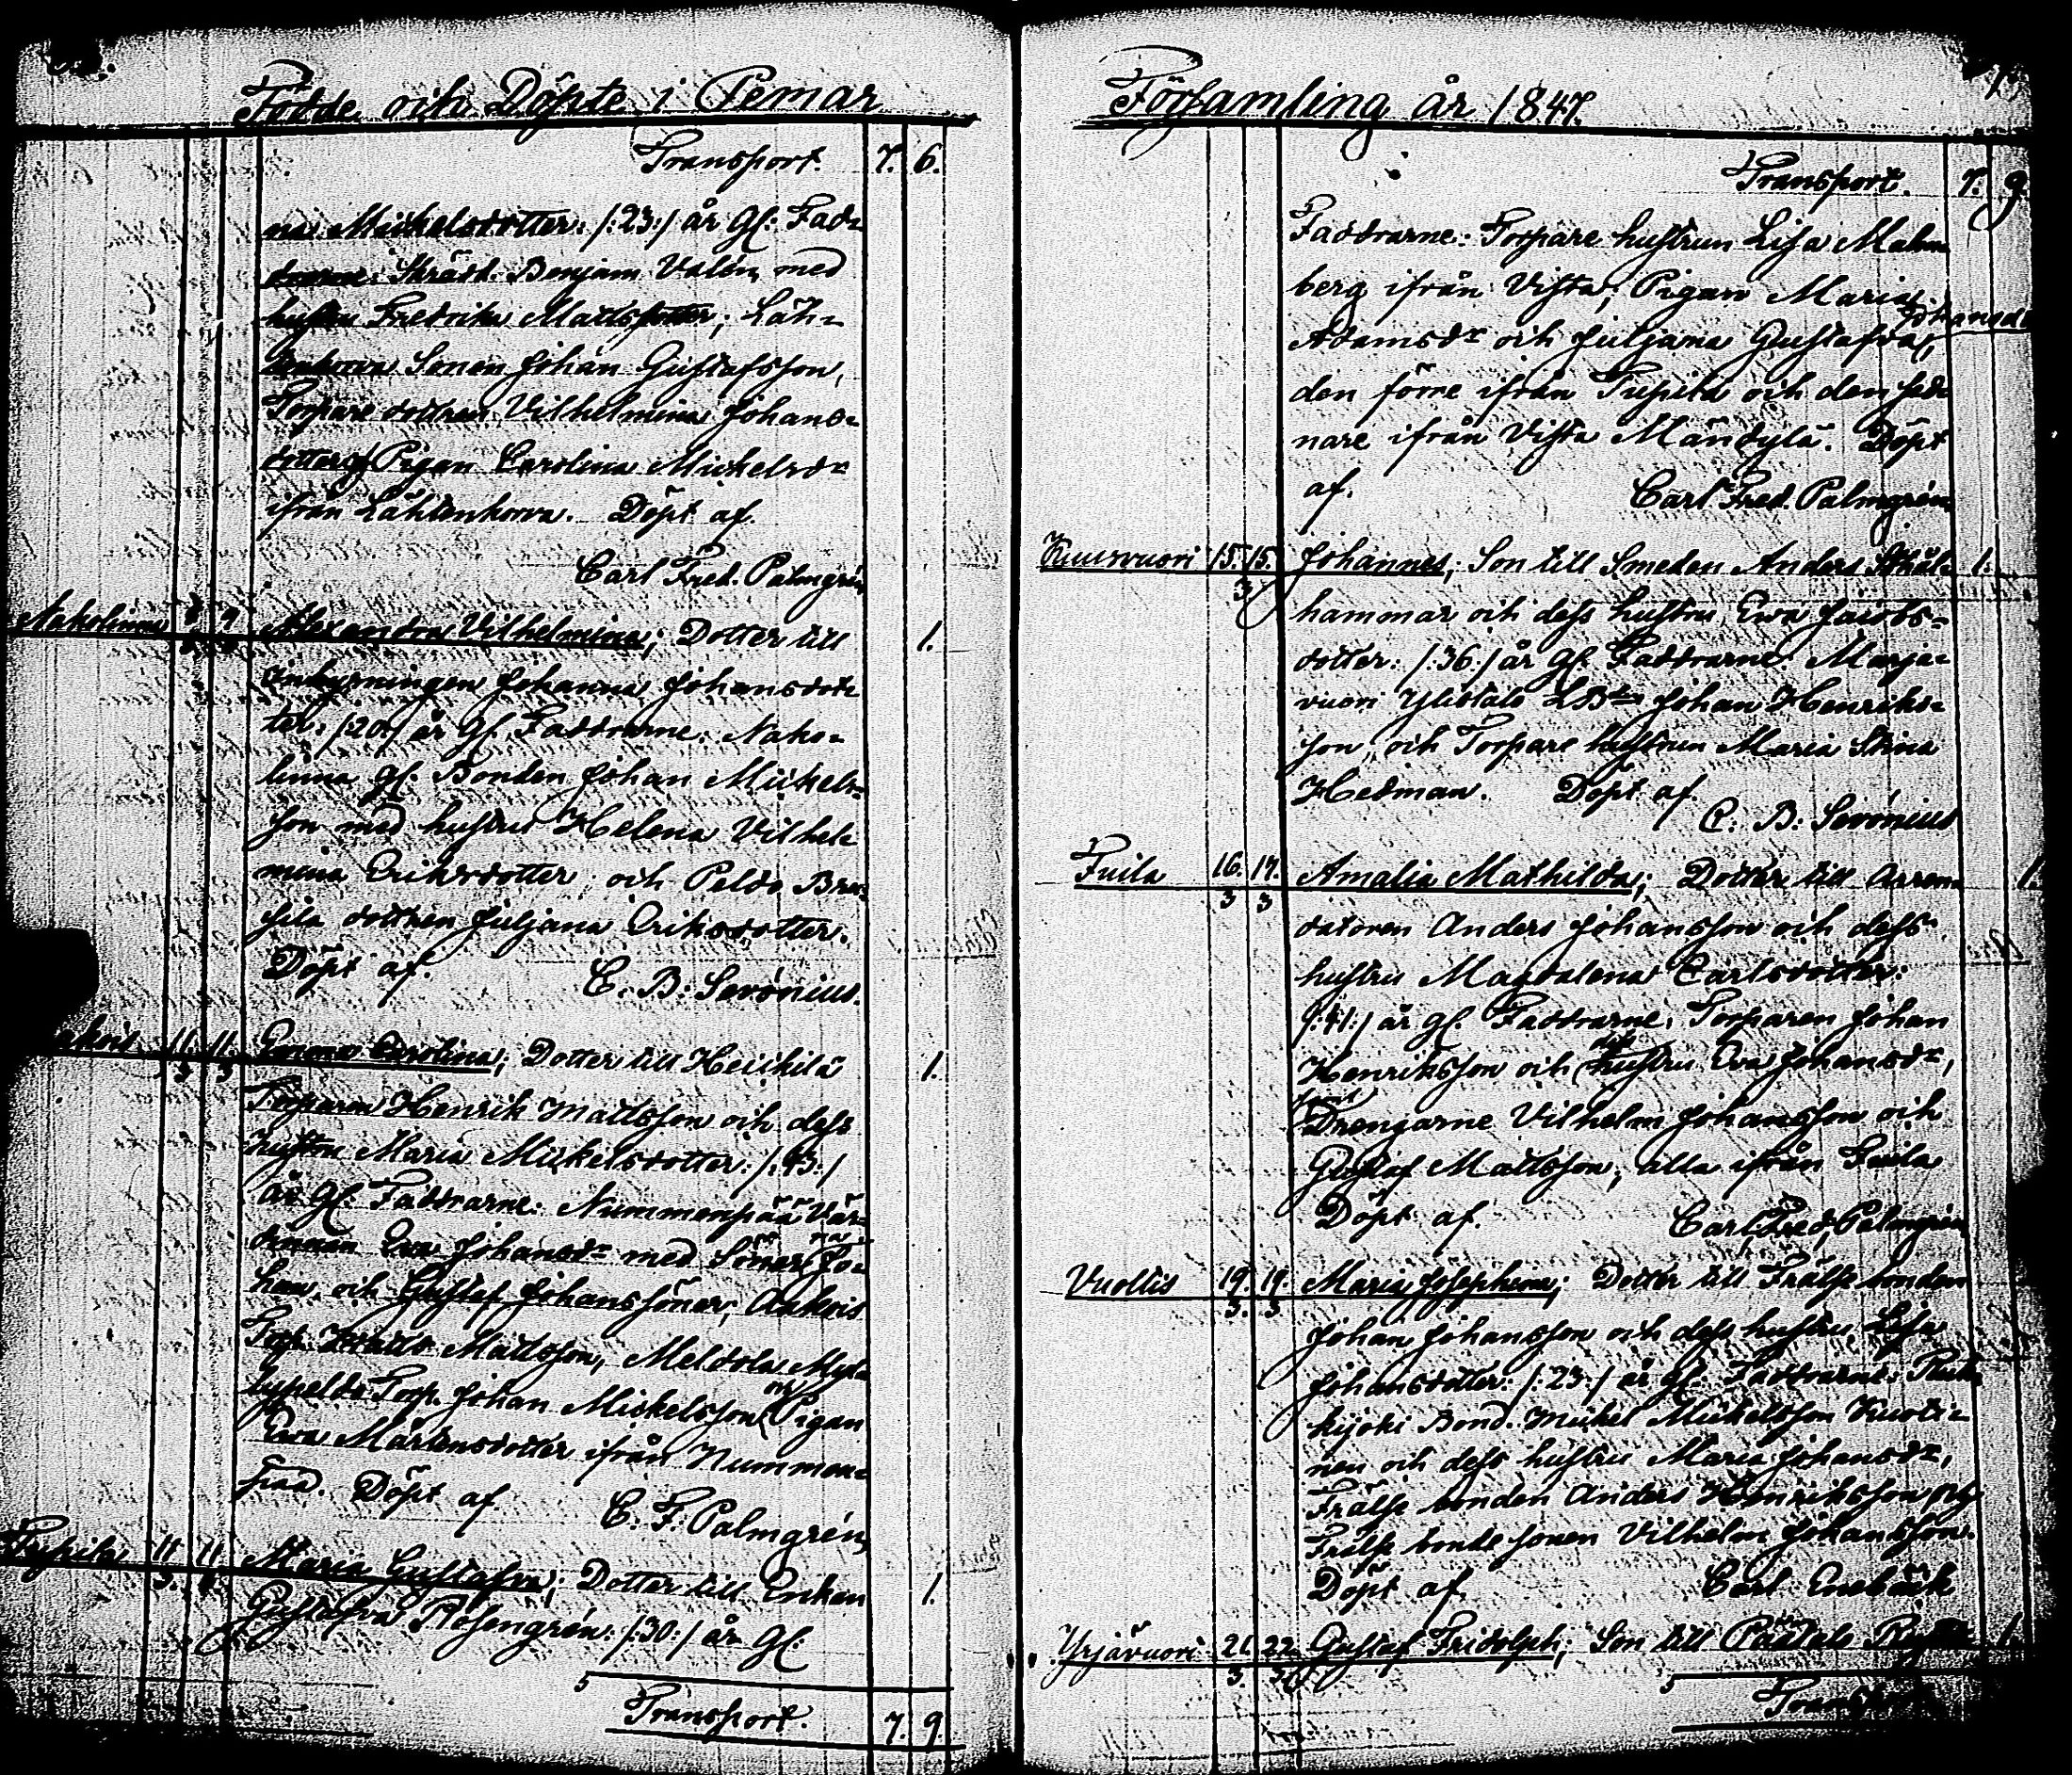 Födde och Döpte i Pemar
Transport. 7. 6.
na Mickelsdotter: /:23:/ år gl: Fad-
drarne: Skrädd. Benjam. Valén med
hustru Fredrika Mattsdotter; Läh-
Sonen Johan Gustafsson,
Torpare dottren Vilhelmina Johans-
dotter och Pigan Carolina Mickelsdr
ifrån Lähtenkorva. Döpt af.
Carl Fred. Palmgrén
Nakolinna 9 Alexandra Vilhelmina; Dotter till 1.
Inhysningen Johanna Johansdot-
ter: /:20:/ år gl. Faddrarne: Nako-
linna gl. Bonden Johan Mickels-
son med hustru Helena Vilhel-
mina Eriksdotter och Peldo
dottren Juljana Eriksdotter.
Döpt af. C. B: Serónius.
11. 11. Emma Carolina; Dotter till Heickilä 1.
3 3
Torparen Henrik Mattsson och dess
hustru Maria Mickelsdotter: /:43:/
år gl: Faddrarne: Nummenpää Vär-
dinnan Eva Johansdr med Sönerna Jo-
han, och Gustaf Johanssöner, Aakois
Torp. Matts Mattsson, Meldola
Torp. Johan Mickelsson, och Pigan
Eva Mårtensdotter ifrån Nummen-
pää. Döpt af C. F. Palmgrén
11 11 Maria Gustafva; Dotter till Enkan 1.
3.
Gustafva Rosengrén: /:30:/ år gl:
5
Transport. 7. 9.
Församling år 1847.
Transport. 7. 9.
Faddrarne: Torpare hustrun Lisa Malm-
berg ifrån Vista; Pigan Maria
Adamsdr och Juljana Gustafva Johansdr,
den förre ifrån och den sed-
nare ifrån Vista Mändylä. Döpt
af. Carl Fred. Palmgrén
Kuusvuori 15. 15. Johannes; Son till Smeden Anders Stål- 1.
3
hammar och dess hustru Eva Jacobs-
dotter: /:36:/ år gl. Faddrarne: Marja-
vuori Ylistalo Johan Henriks-
son, och Torpare hustrun Maria Stina
Hedman. Döpt af.
C: B: Serónius
Fuila 16. 17. Amalia Mathilda; Dotter till Arren- 1.
3 3
datoren Anders Johansson och dess
hustru Magdalena Carlsdotter:
/:41:/ år gl. Faddrarne: Torparen Johan
Henriksson och dess hustru Eva Johansdr,
samt
Drengarne Vilhelm Johansson och
Gustaf Mattsson, alla ifrån Fuila
Döpt af. Carl Fred. Palmgrén
Vuoltis 19. 19. Maria Josephina; Dotter till Frälse bonden
3. 3
Johan Johansson och dess hustru Lisa
Johansdotter: /:23:/ år gl. Faddrarne:
kijoki Bond. Mickel Mickelsson Kuoti-
nen och dess hustru Maria Johansdr,
Frälse bonden Anders Henriksson och
Frälse bonde sonen Vilhelm Johansson.
Döpt af. Carl Enebäck
Yrjävuori 21. 22. Gustaf Fridolph; Son till 1.
3. 3
5
Transport